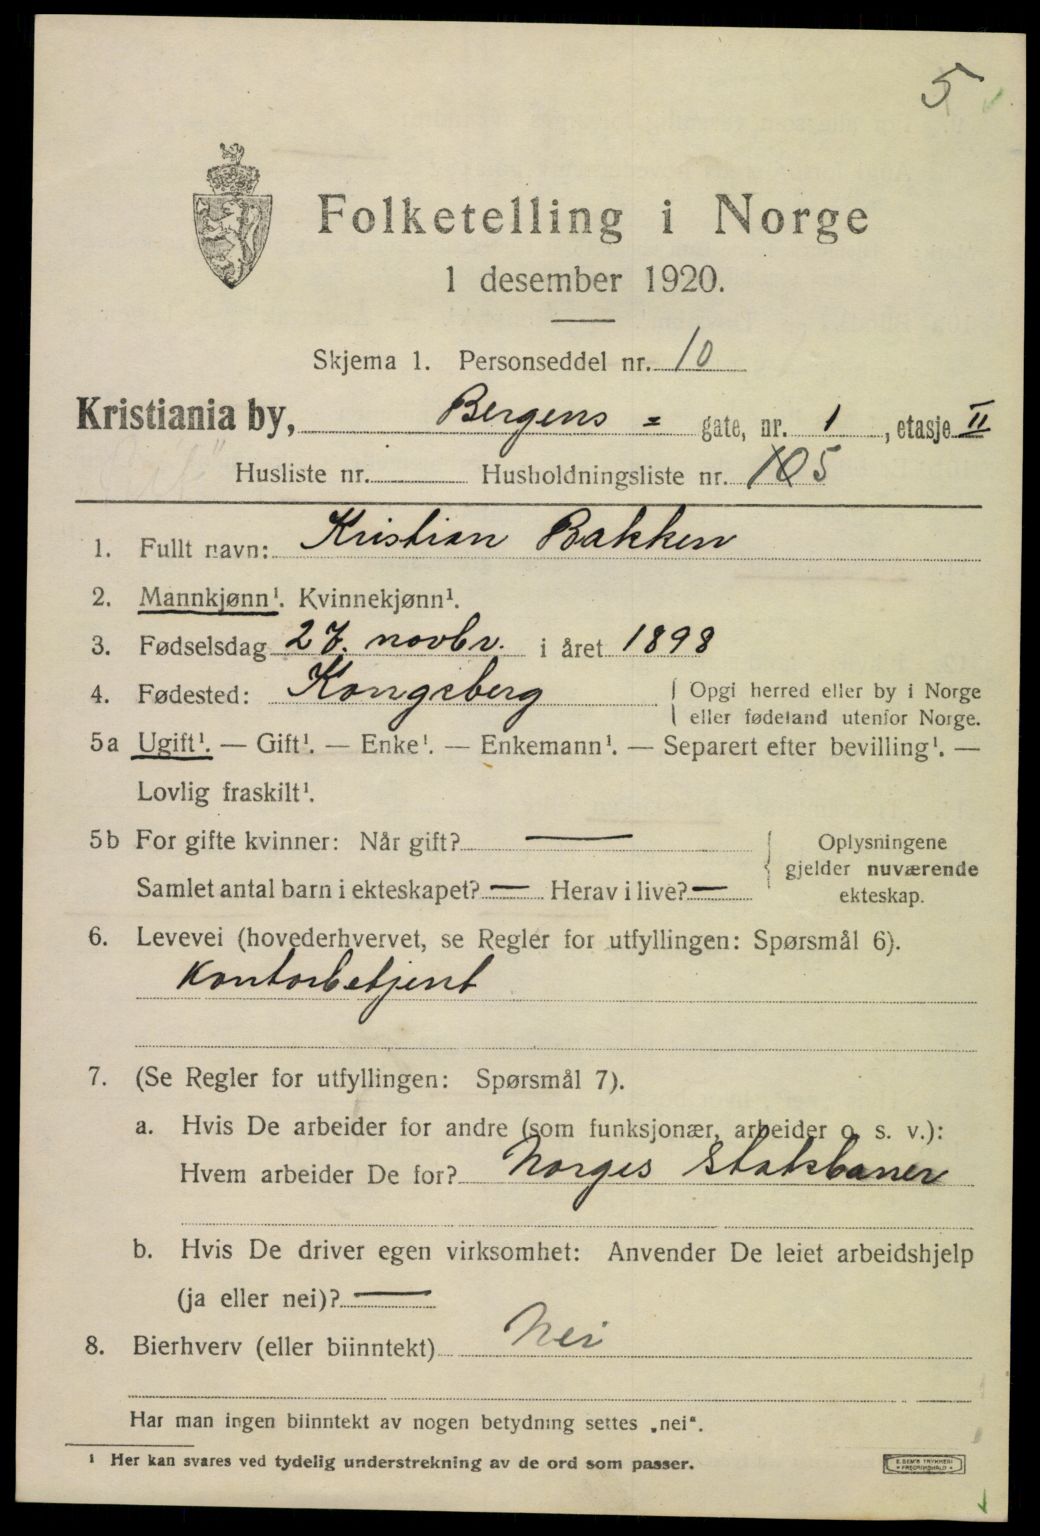 5
Folketelling i Norge
1 desember 1920.
Skjema 1. Personseddel nr. 10
Kristiania by, Bergens = gate, nr. 1, etasje II
Husliste nr. Husholdningsliste nr. 10 5
1. Fullt navn: Kristian Bakken
2. Mannkjønn¹. Kvinnekjønn¹.
3. Fødselsdag 27. novbr. i året 1898
4. Fødested: Kongsberg
Opgi herred eller by i Norge
eller fødeland utenfor Norge.
5a Ugift¹. — Gift¹. — Enke¹. — Enkemann¹. — Separert efter bevilling¹. —
Lovlig fraskilt¹.
5b For gifte kvinner: Når gift? —
Samlet antal barn i ekteskapet? — Herav i live? —
Oplysningene
gjelder nuværende
ekteskap.
6. Levevei (hovederhvervet, se Regler for utfyllingen: Spørsmål 6).
Kontorbetjent
7. (Se Regler for utfyllingen: Spørsmål 7).
a. Hvis De arbeider for andre (som funksjonær, arbeider o. s. v.):
Hvem arbeider De for? Norges Statsbaner
b. Hvis De driver egen virksomhet: Anvender De leiet arbeidshjelp
(ja eller nei)? —
8. Bierhverv (eller biinntekt) Nei
Har man ingen biinntekt av nogen betydning settes „nei“.
¹ Her kan svares ved tydelig understrekning av de ord som passer.
E. SEM'S TRYKKERI
FREDRIKSHALD